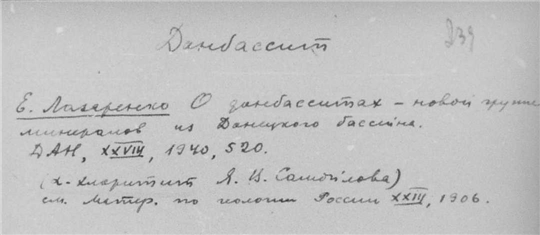 Донбассит
239
Е. Лазаренко О донбасситах – новой группе
минералов из Донецкого бассейна.
ДАН, XXVIII, 1940, 520.
(х-хлоритит Я. В. Самойлова)
см. Матер. по геологии России XXIII, 1906.